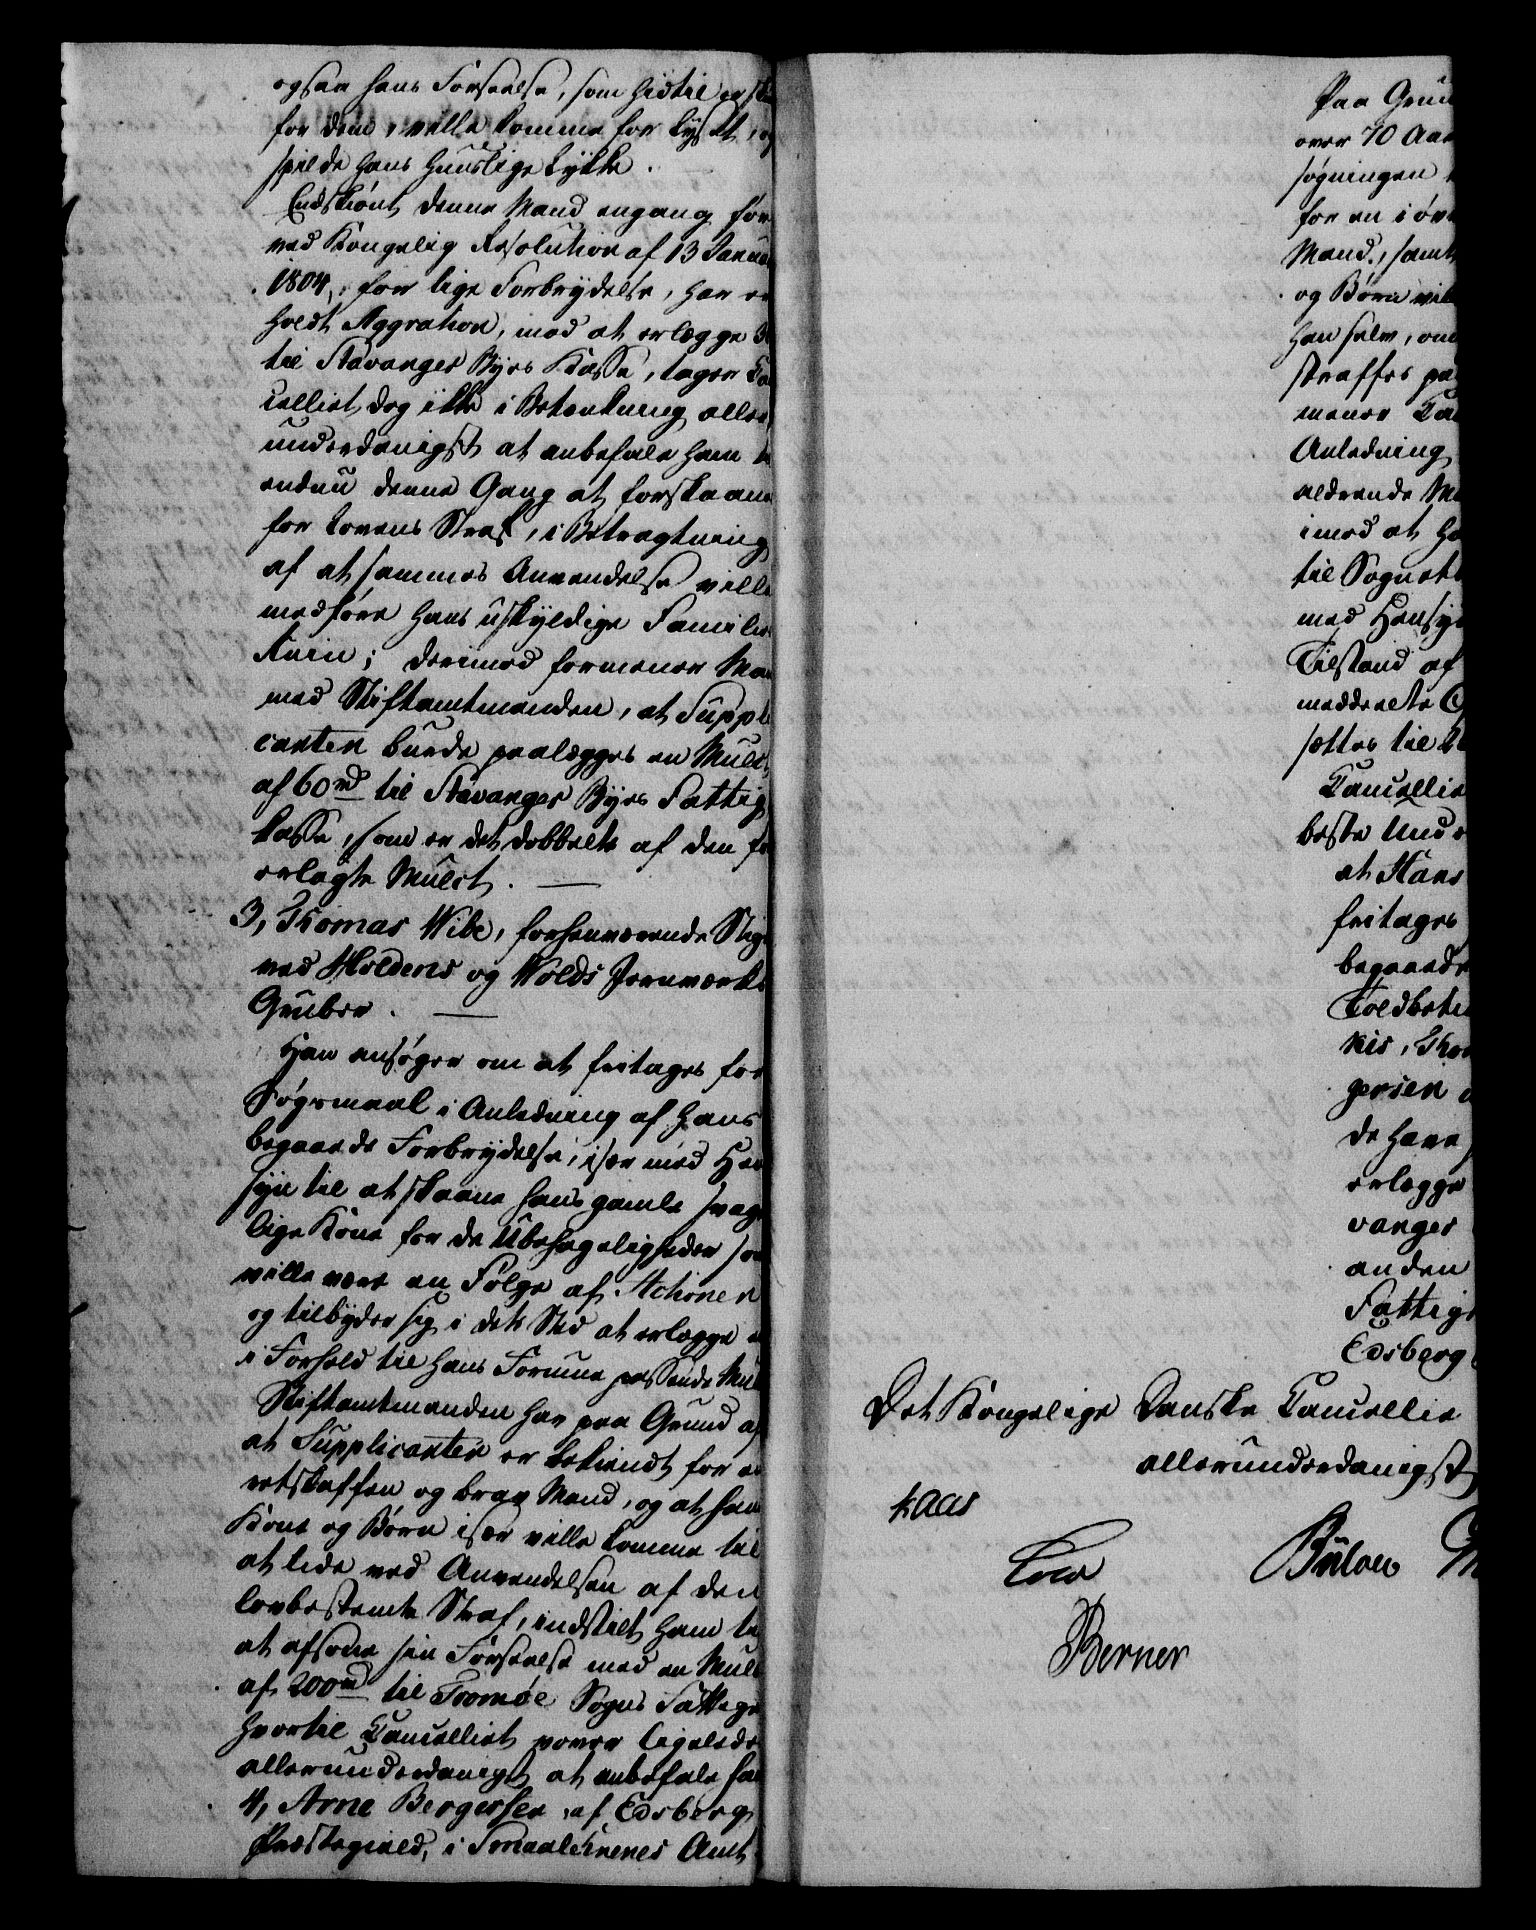 ogsaa hans Forseelse, som hidtil er
for dem, ville komme for Lyset, og
spilde hans huuslige Lykke.
Endskiønt denne Mand engang før
ved Kongelig Resolution af 13 Januar
1804, for lige Forbrydelse, har er
holdt Aggration, mod at erlægge 3
til Stavanger Byes Kasse, tager Can
celliet dog ikke i Betænkning aller
underdanigst at anbefale ham til
endnu denne Gang at forskaanes
for Lovens Straf, i Betragtning
af at sammes Anvendelse ville
medføre hans uskyldige Families
Ruin; derimod formener Man
med Stiftamtmanden, at Suppli
canten burde paalægges en Mulct
af 60 rd til Stavanger Byes Fattig
kasse, som er det dobbelte af den før
erlagte Mulct.
3, Thomas Wibe, forhenværende Stig
ved Holdens og Wolds Jernværks
Gruber.
Han ansøger om at fritages for
Søgsmaal i Anledning af hans
begaaede Forbrydelse, især med Hen
syn til at skaane hans gamle svage
lige Kone for de Ubehageligheder som
ville være en Følge af Actionen
og tilbyder sig i dets Sted at erlægge en
i Forhold til hans Formue passende Mulct
Stiftamtmanden har paa Grund af
at Supplicanten er bekiendt for en
retskaffen og brav Mand, og at hans
Kone og Børn især ville komme til
at lide ved Anvendelsen af den
lovbestemte Straf, indstilt ham til
at afsone sin Forseelse med en Mulct
af 200 rd til Tromøe Sogns Fattige
hvortil Cancelliet vover ligeledes
allerunderdanigst at anbefale ham
4, Arne Bergersen, af Edsberg
Præstegield, i Smaalehnenes Amt.
Paa Grund
over 70 Aar
søgningen
for en i øvr
Mand, samt
og Børn vil
han selv, om
straffes paa
mener Can
Anledning
aldrende Ma
imod at ha
til Sognets
med Hensyn
Tilstand af
meddeelte
sættes til
Cancellie
beste Under
at Hans
fritages
begaaede
Toldbetie
kis, Tho
gersen
de have
erlægge
vanger
anden
Fattige
Edsberg
Det Kongelige Danske Cancellie
allerunderdanigst
Kaas
Cold
Bülow M
Berner